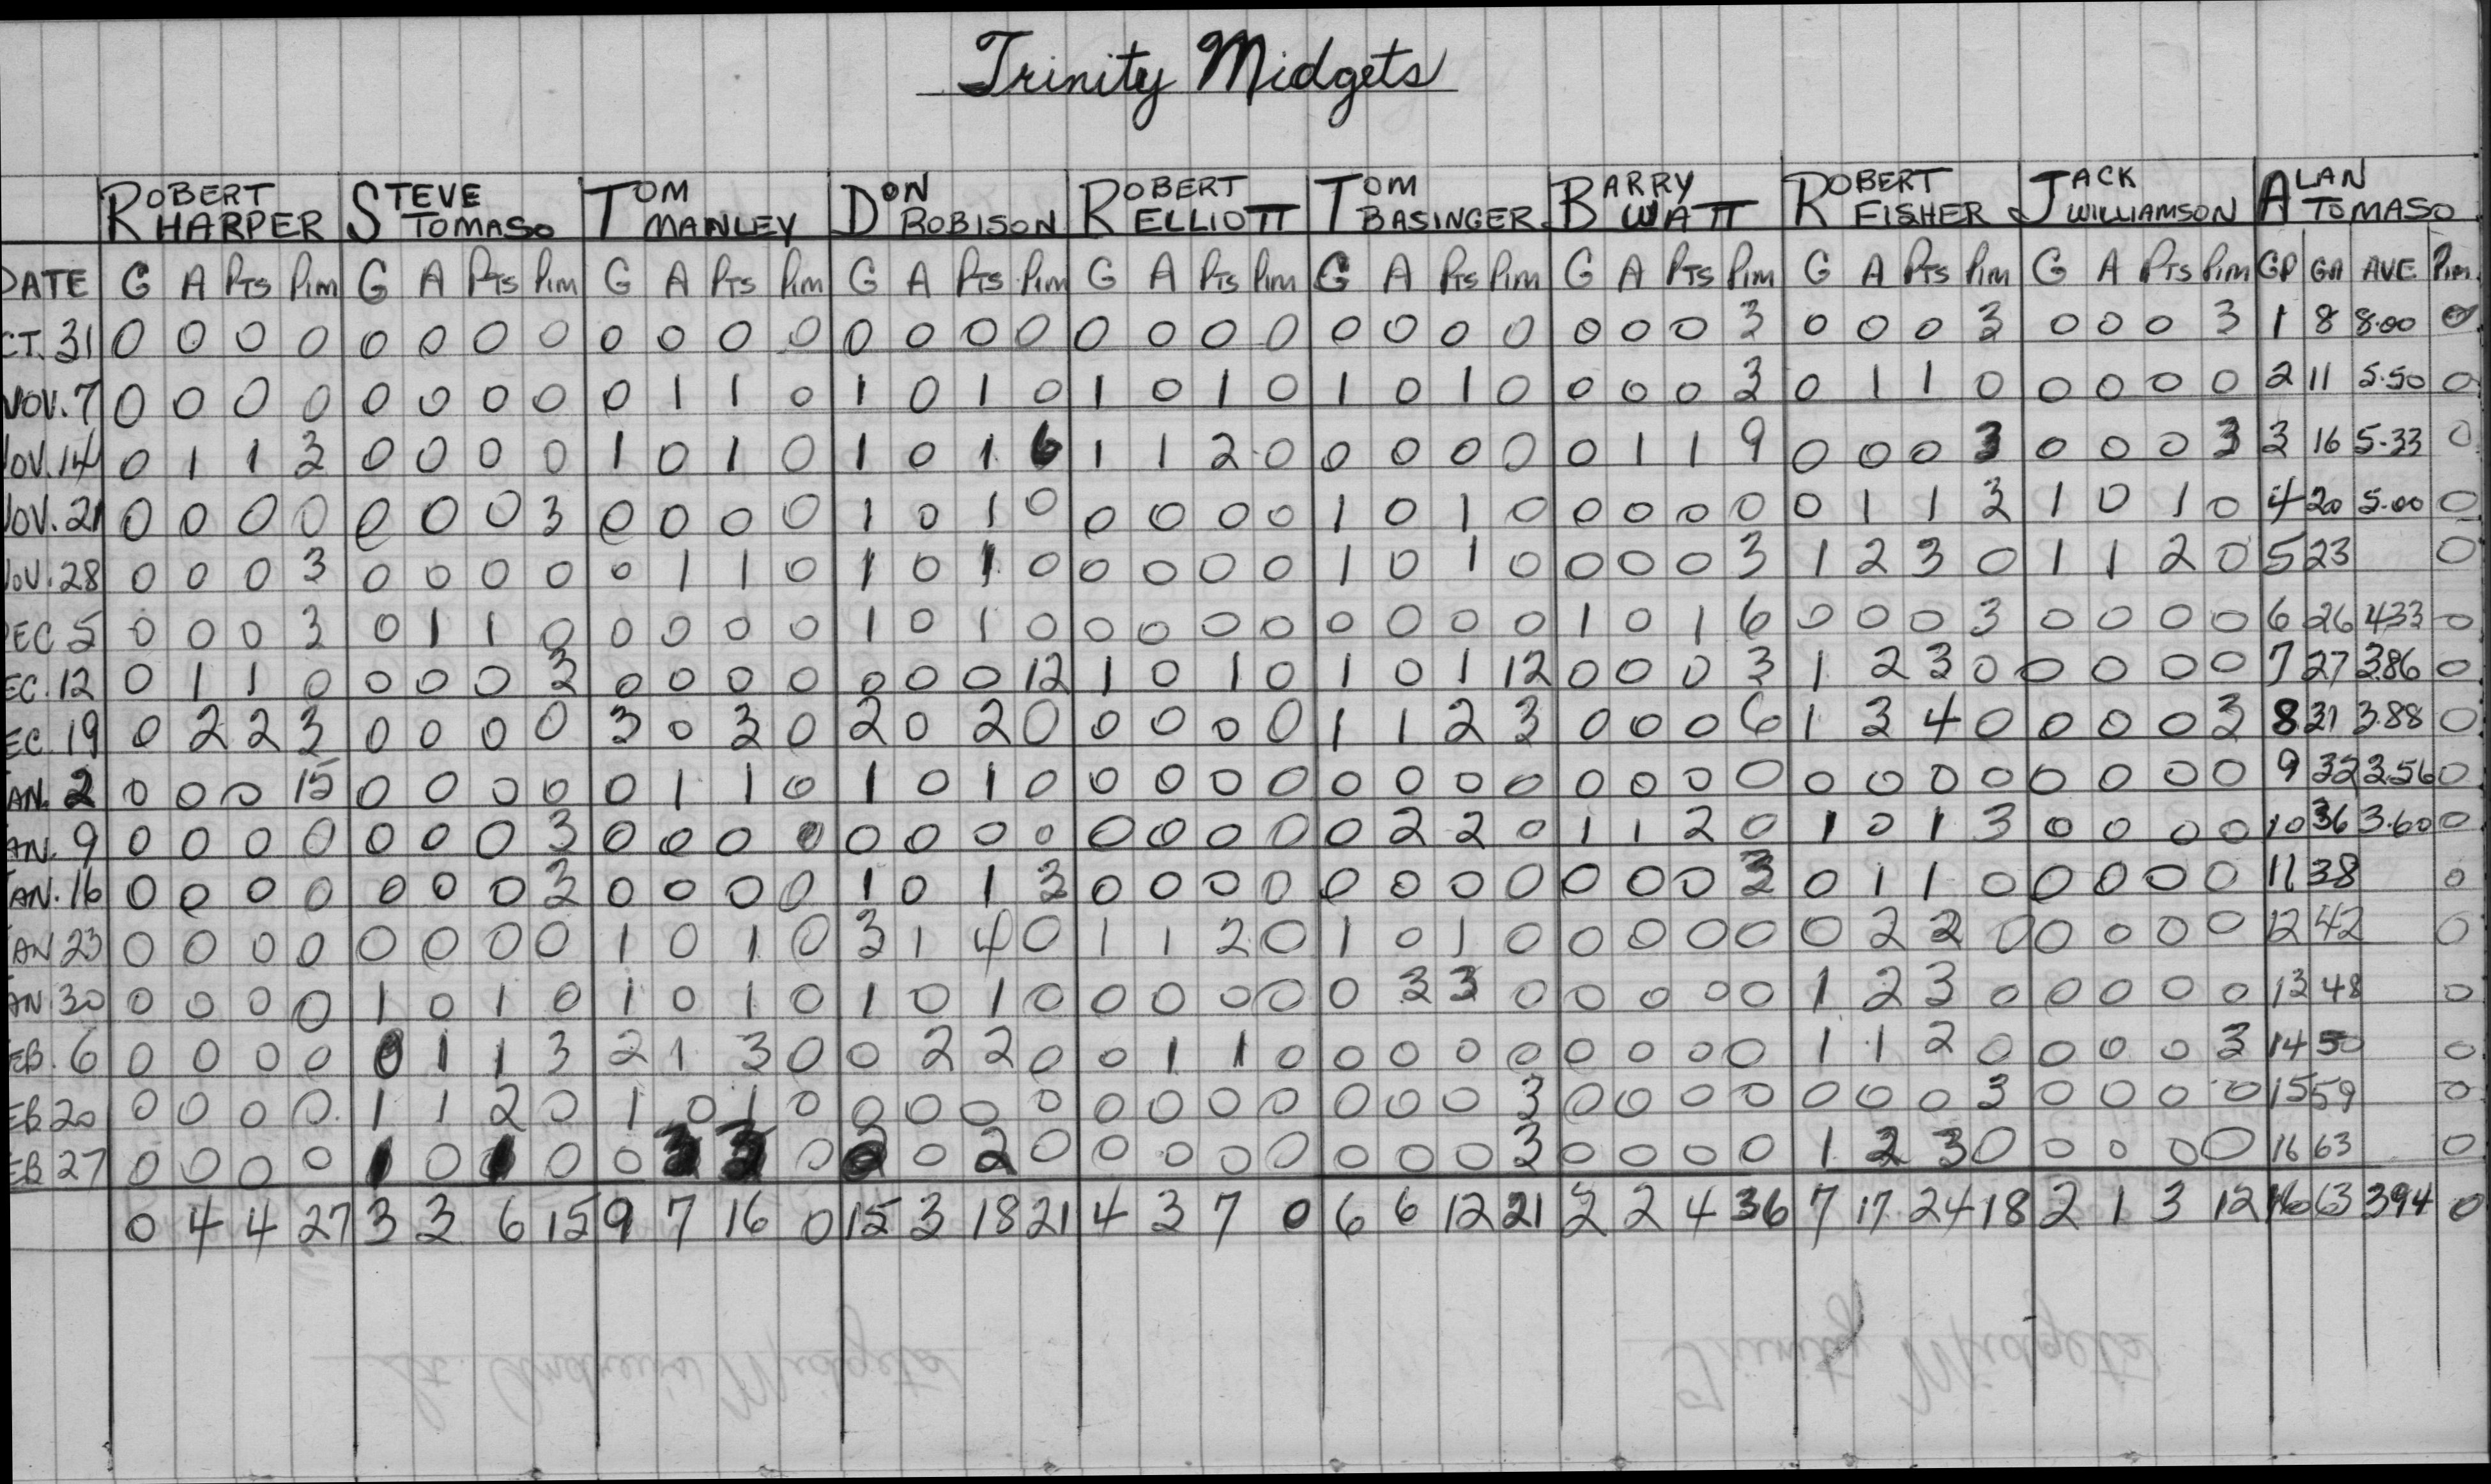 Trinity Midgets
ROBERT HARPER STEVE TOMASO TOM MANLEY DON ROBISON ROBERT ELLIOTT TOM BASINGER BARRY WATT ROBERT FISHER JACK WILLIAMSON ALAN TOMASO
DATE G A PTS PIM G A PTS PIM G A PTS PIM G A PTS PIM G A PTS PIM G A PTS PIM G A PTS PIM G A PTS PIM G A PTS PIM GP GA AVE PIM
CT. 31 0 0 0 0 0 0 0 0 0 0 0 0 0 0 0 0 0 0 0 0 0 0 0 0 0 0 0 3 0 0 0 3 0 0 0 3 1 8 8.00 0
NOV. 7 0 0 0 0 0 0 0 0 0 1 1 0 1 0 1 0 1 0 1 0 1 0 1 0 0 0 0 3 0 1 1 0 0 0 0 0 2 11 5.50 0
NOV. 14 0 1 1 3 0 0 0 0 1 0 1 0 1 0 1 6 1 1 2 0 0 0 0 0 0 1 1 9 0 0 0 3 0 0 0 3 3 16 5.33 0
NOV. 21 0 0 0 0 0 0 0 3 0 0 0 0 1 0 1 0 0 0 0 0 1 0 1 0 0 0 0 0 0 1 1 3 1 0 1 0 4 20 5.00 0
NOV. 28 0 0 0 3 0 0 0 0 0 1 1 0 1 0 1 0 0 0 0 0 1 0 1 0 0 0 0 3 1 2 3 0 1 1 2 0 5 23 0
DEC 5 0 0 0 3 0 1 1 0 0 0 0 0 1 0 1 0 0 0 0 0 0 0 0 0 1 0 1 6 0 0 0 3 0 0 0 0 6 26 433 0
EC. 12 0 1 1 0 0 0 0 3 0 0 0 0 0 0 0 12 1 0 1 0 1 0 1 12 0 0 0 3 1 2 3 0 0 0 0 0 7 27 3.86 0
EC. 19 0 2 2 3 0 0 0 0 3 0 3 0 2 0 2 0 0 0 0 0 1 1 2 3 0 0 0 6 1 3 4 0 0 0 0 3 8 31 3.88 0
AN. 2 0 0 0 15 0 0 0 0 0 1 1 0 1 0 1 0 0 0 0 0 0 0 0 0 0 0 0 0 0 0 0 0 0 0 0 0 9 32 3.56 0
AN. 9 0 0 0 0 0 0 0 3 0 0 0 0 0 0 0 0 0 0 0 0 0 2 2 0 1 1 2 0 1 0 1 3 0 0 0 0 10 36 3.60 0
AN. 16 0 0 0 0 0 0 0 3 0 0 0 0 1 0 1 3 0 0 0 0 0 0 0 0 0 0 0 3 0 1 1 0 0 0 0 0 11 38 0
AN 23 0 0 0 0 0 0 0 0 1 0 1 0 3 1 4 0 1 1 2 0 1 0 1 0 0 0 0 0 0 2 2 0 0 0 0 0 12 42 0
AN 30 0 0 0 0 1 0 1 0 1 0 1 0 1 0 1 0 0 0 0 0 0 3 3 0 0 0 0 0 1 2 3 0 0 0 0 0 13 48 0
EB. 6 0 0 0 0 0 1 1 3 2 1 3 0 0 2 2 0 0 1 1 0 0 0 0 0 0 0 0 0 1 1 2 0 0 0 0 3 14 50 0
EB 20 0 0 0 0 1 1 2 0 1 0 1 0 0 0 0 0 0 0 0 0 0 0 0 3 0 0 0 0 0 0 0 3 0 0 0 0 15 59 0
EB 27 0 0 0 0 1 0 1 0 0 3 3 0 2 0 2 0 0 0 0 0 0 0 0 3 0 0 0 0 1 2 3 0 0 0 0 0 16 63 0
0 4 4 27 3 3 6 15 9 7 16 0 15 3 18 21 4 3 7 0 6 6 12 21 2 2 4 36 7 17 24 18 2 1 3 12 16 63 394 0